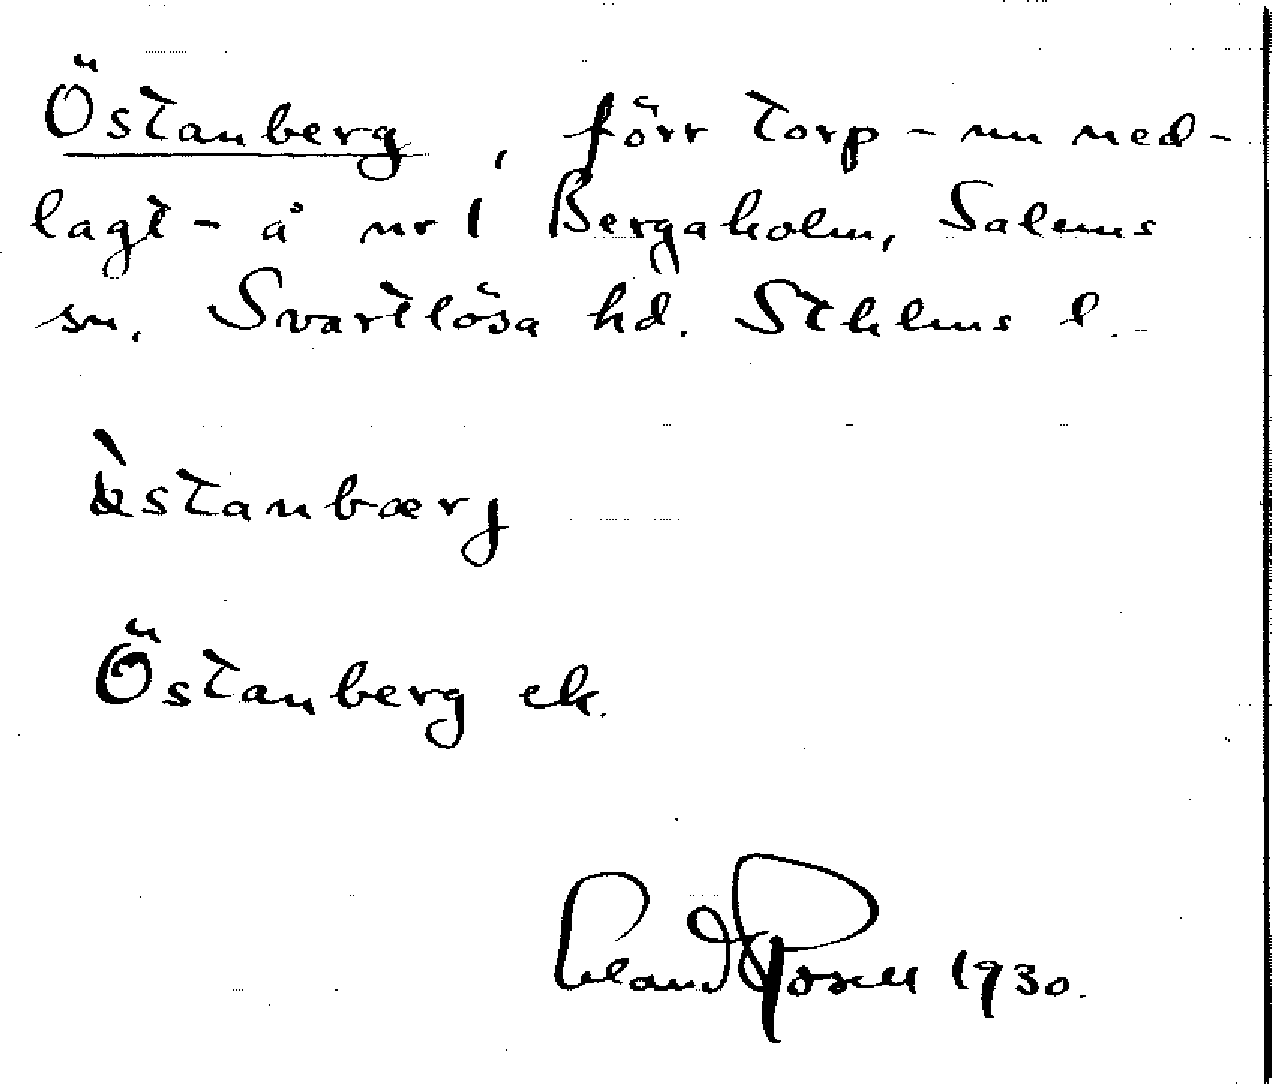 Östanberg, förr torp - nu ned-
lagt - å nr 1 Bergaholm, Salems
sn. Svartlösa hd. Sthlms l.
stanbærj
Östanberg ek.
Erland Rosell 1930.